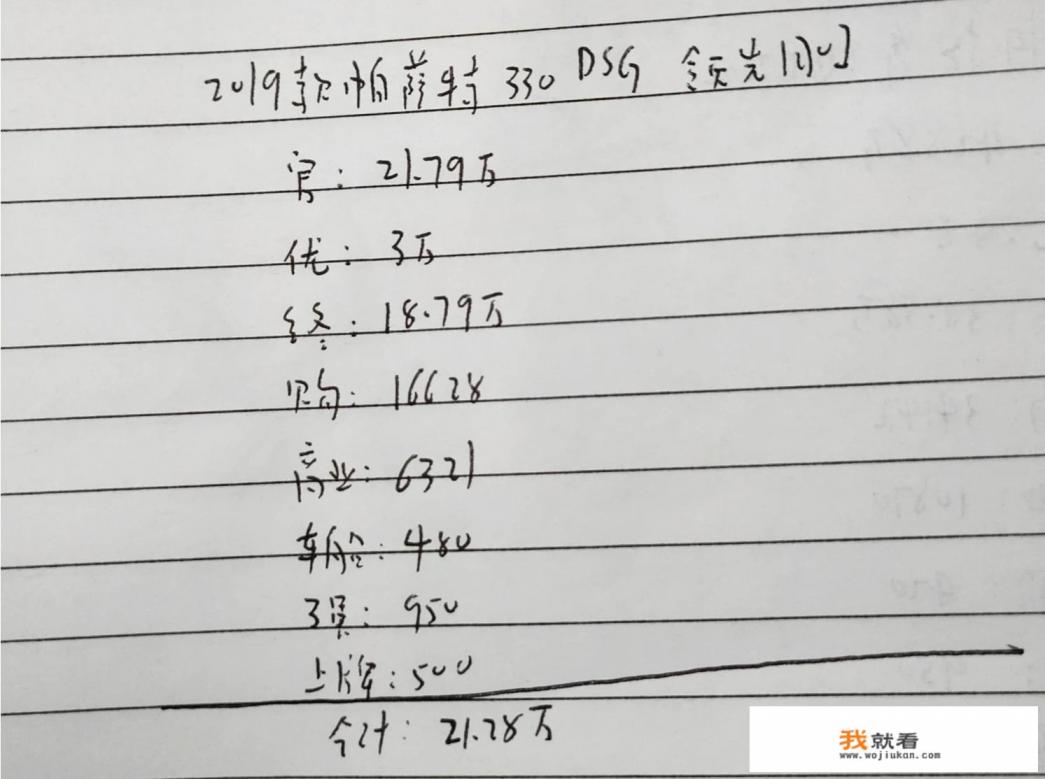 2019款帕萨特 330 DSG 领先
官: 21.79万
优: 3万
终: 18.79万
购: 16628
商业: 6321
车船: 480
交强: 950
上牌: 500
合计: 21.28万
我就看
www.wojiukan.com